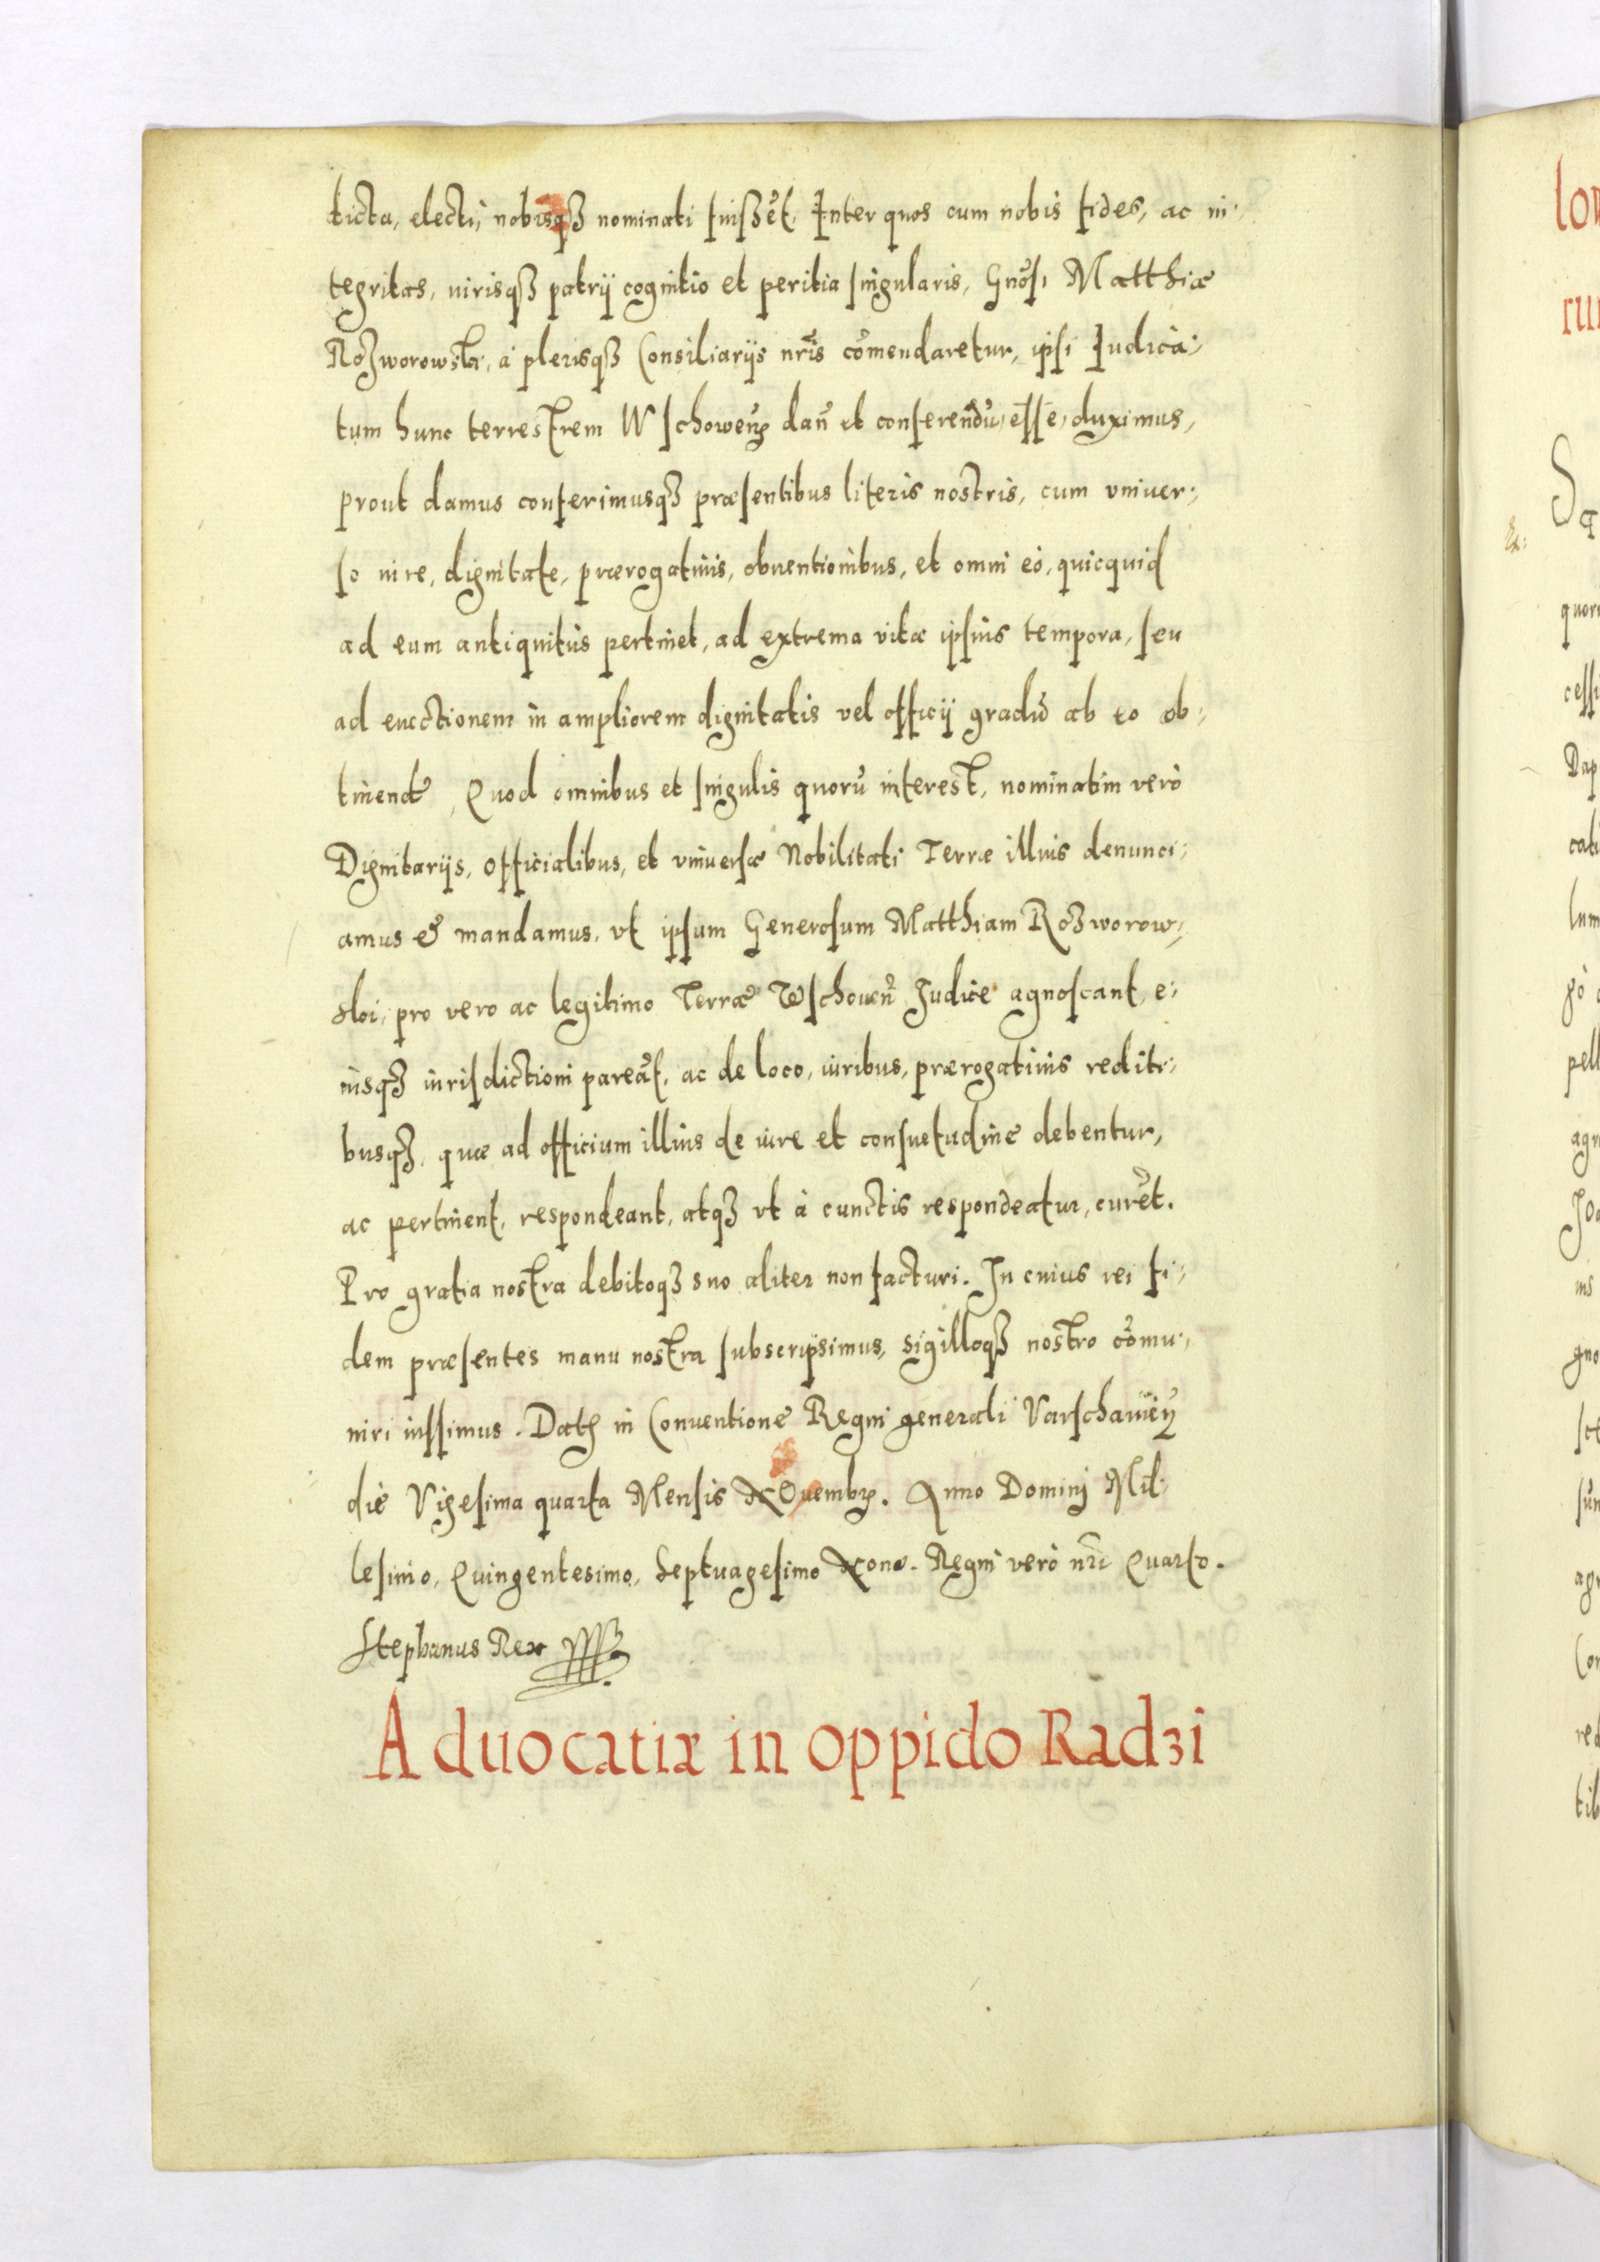 dicta, electi, nobisqȝ nominati fuisse͂t. Inter quos cum nobis fides, ac in-
tegritas, iurisqȝ patrij cognitio et peritia singularis, Gno͂si Matthiæ
Roȝworowski, à plerisqȝ Consiliarijs nr͂is co͂mendaretur, ipsi Iudica-
tum hunc terrestrem Wschowen͂ dan͂ et conferendu͂ esse duximus,
prout damus conferimusqȝ præsentibus literis nostris, cum vniuer-
so iure, dignitate, prærogatiuis, obuentionibus, et omni eo, quicquid
ad eum antiquitùs pertinet, ad extrema vitæ ipsius tempora, seu
ad euectionem in ampliorem dignitatis vel officij gradu͂ ab eo ob-
tinend͂. Quod omnibus et singulis quoru͂ interest, nominatim verò
Dignitarijs, Officialibus, et vniuersæ Nobilitati Terræ illius denunci-
amus & mandamus, vt ipsum Generosum Matthiam Roȝworow-
ski, pro vero ac legitimo Terræ Wschouen͂ Iudice agnoscant, e-
iusqȝ iurisdictioni parea͂t, ac de loco, iuribus, prærogatiuis rediti-
busqȝ, quæ ad officium illius de iure et consuetudine debentur,
ac pertinent, respondeant, atqȝ vt à cunctis respondeatur, cure͂t.
Pro gratia nostra debitoqȝ suo aliter non facturi. In cuius rei fi-
dem præsentes manu nostra subscripsimus, sigilloqȝ nostro co͂mu-
niri iussimus. Datȝ in Conuentione Regni generali Varschauien͂
die Vigesima quarta Mensis Nouembr͂. Anno Domini Mil-
lesimo, Quingentesimo, Septuagesimo Nono. Regni verò nr͂i Quarto.
Stephanus Rex
Aduocatiæ in oppido Radȝi